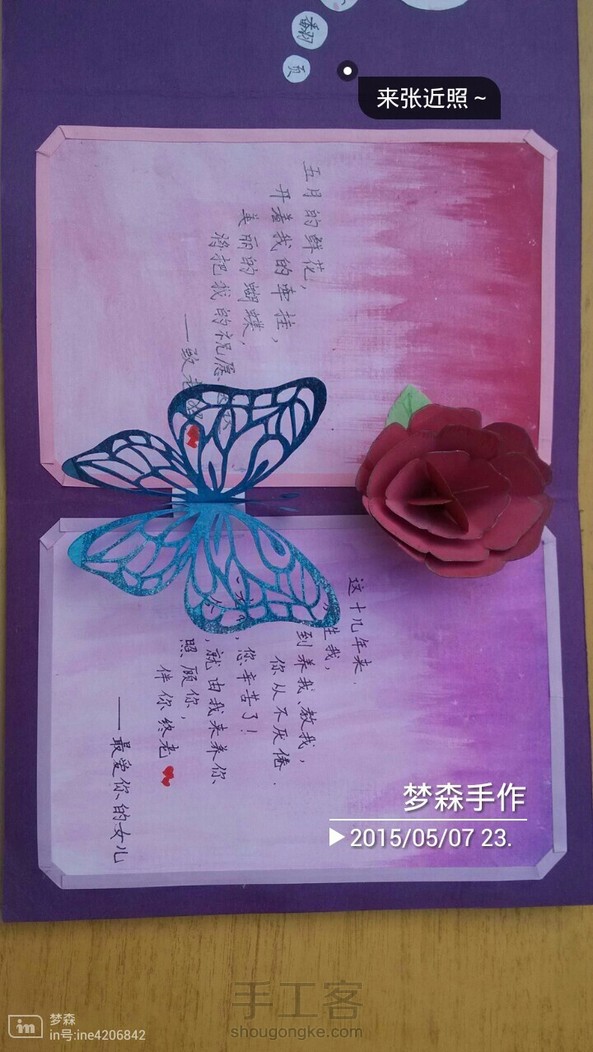 翻
页
来张近照~
五月的鲜花，
开着我的牵挂，
美丽的蝴蝶，
将把我的祝愿
——致
这十几年来，
生我，
到养我、教我，
你从不厌倦.
您辛苦了！
，就由我来养你
照顾你，
伴你终老
——最爱你的女儿
梦森手作
2015/05/07 23.
手工客
shougongke.com
in
梦森
in号:ine4206842